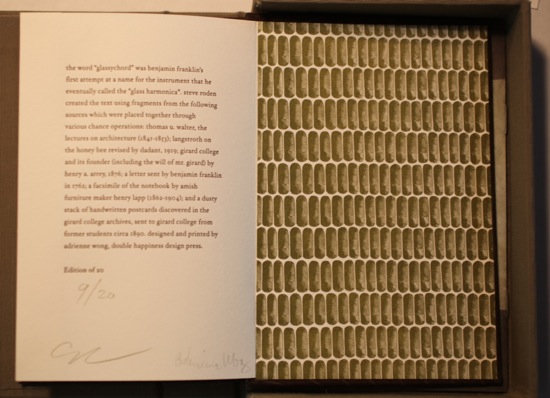 the word "glassychord" was benjamin franklin's
first attempt at a name for the instrument that he
eventually called the "glass harmonica". steve roden
created the text using fragments from the following
sources which were placed together through
various chance operations: thomas u. walter, the
lectures on architecture (1841-1853); langstroth on
the honey bee revised by dadant, 1919; girard college
and its founder (including the will of mr. girard) by
henry a. arrey, 1876; a letter sent by benjamin franklin
in 1762; a facsimile of the notebook by amish
furniture maker henry lapp (1862-1904); and a dusty
stack of handwritten postcards discovered in the
girard college archives, sent to girard college from
former students circa 1890. designed and printed by
adrienne wong, double happiness design press.
Edition of 20
9/20